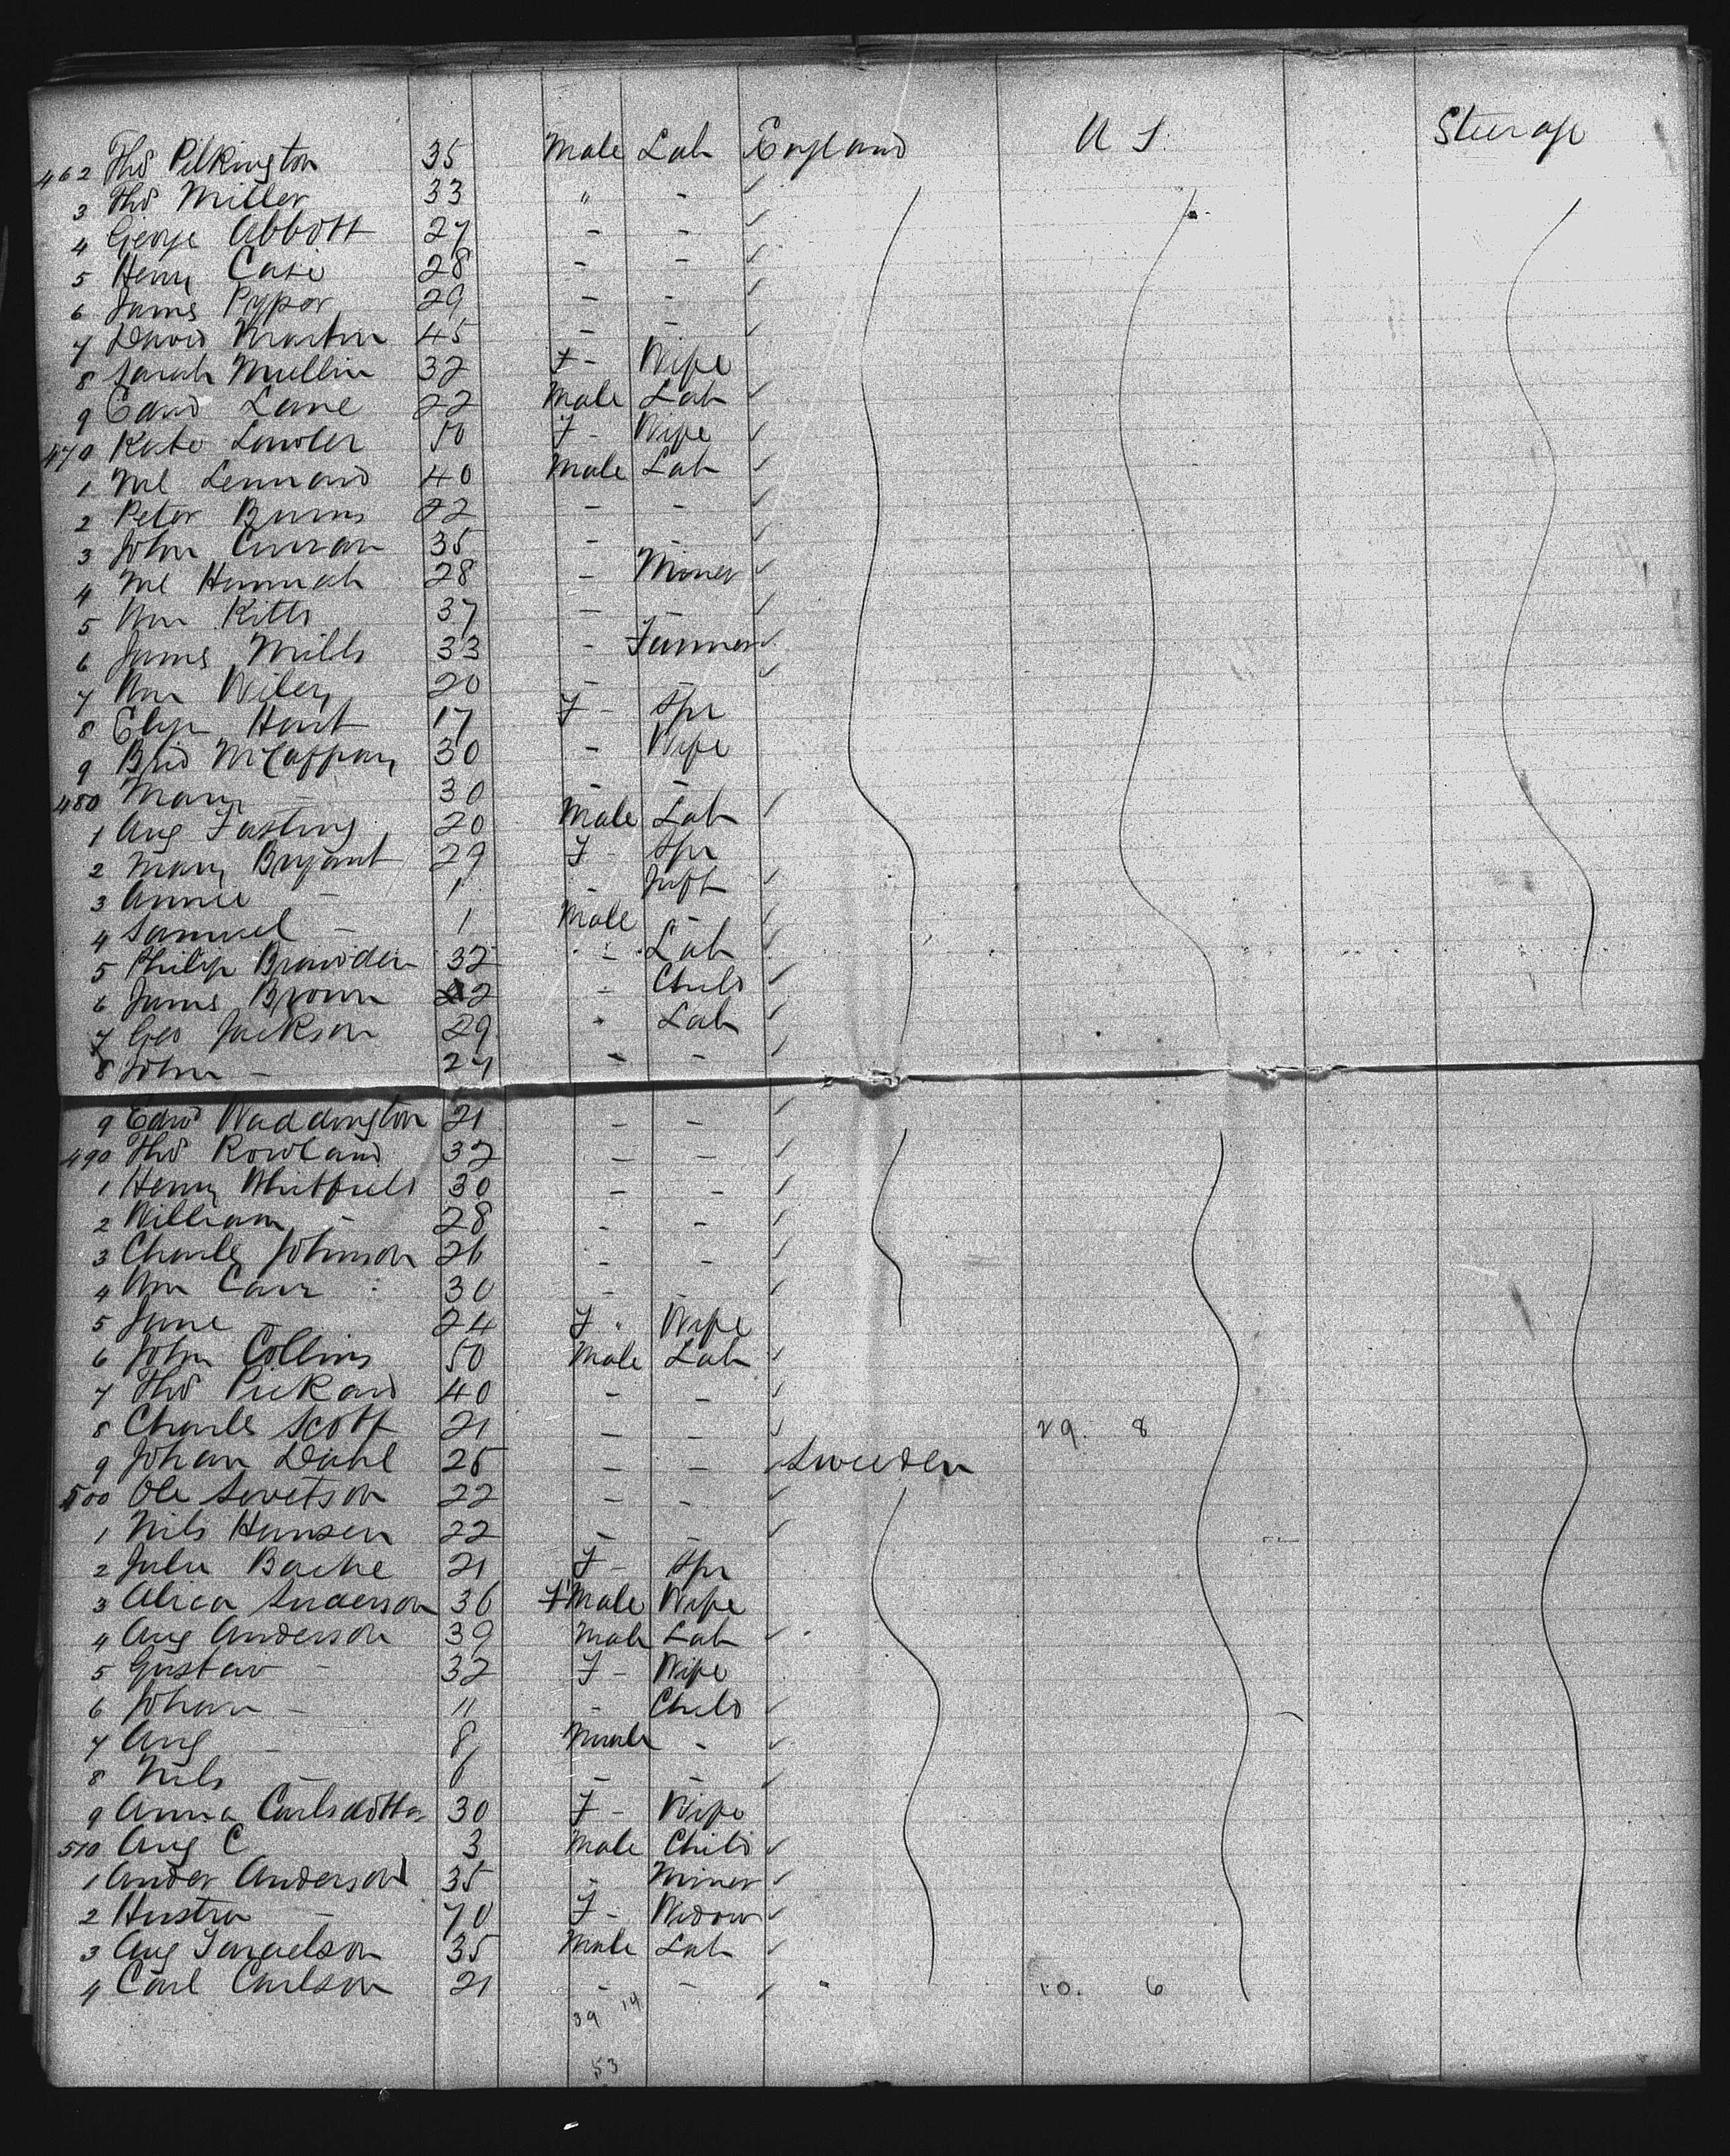 462 Thos Pilkington 35 Male Lab England U S. Steerage
3 Thos Miller 33 " -
4 George Abbott 27 - -
5 Henry Case 28 - -
6 James Prypor 29 - -
7 David Martin 45 - -
8 Sarah Mullin 32 F - Wife
9 Edwd Lane 22 Male Lab
470 Kate Lawler 50 F - Wife
1 Ml Lennard 40 Male Lab
2 Peter Burns 22 - -
3 John Curran 35 - -
4 Ml Hannah 28 - Miner
5 Wm Kitts 37 - -
6 James Mills 33 - Farmer
7 Wm Wiley 20 - -
8 Eliza Hart 17 F - Spr
9 Brid McCaffray 30 - Wife
480 Mary - 30 - -
1 Aug Fasting 20 Male Lab
2 Mary Bryant 29 F - Spr
3 Annie - 1 - Inft
4 Samuel - 1 Male -
5 Philip Browden 32 - Lab
6 James Brown 22 - Child
7 Geo Jackson 29 - Lab
8 John - 24 - -
9 Edwd Waddington 21 - -
490 Thos Rowland 32 - -
1 Henry Whitfield 30 - -
2 William - 28 - -
3 Charles Johnson 26 - -
4 Wm Carr 30 - -
5 Jane - 24 F - Wife
6 John Collins 50 Male Lab
7 Thos Pickard 40 - -
8 Charles Scott 21 - - 29. 8
9 Johan Dahl 25 - - Sweden
500 Ole Sivetson 22 - -
1 Nils Hansen 22 - -
2 Julia Bache 21 F - Spr
3 Alica Anderson 36 F Male Wife
4 Aug Anderson 39 Male Lab
5 Gustav - 32 F - Wife
6 Johan - 11 - Child
7 Aug - 8 Male -
8 Nils - 6 - -
9 Anna Carlsdotter 30 F - Wife
510 Aug C 3 Male Child
1 Ander Anderson 35 - Miner
2 Hustru - 70 F - Widow
3 Aug Israelson 35 Male Lab
4 Carl Carlson 21 - - 10. 6
39 14
53